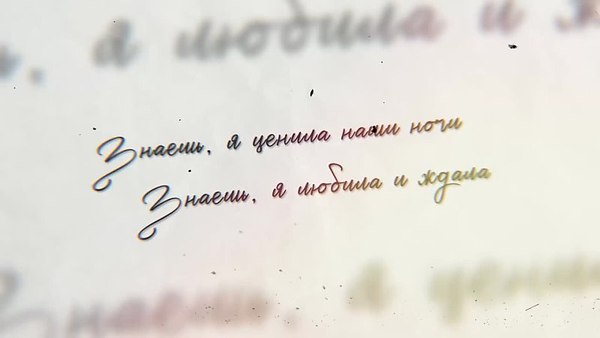 , я любила и ж
Знаешь, я ценила наши ночи
Знаешь, я любила и ждала
Знаешь, я ценила